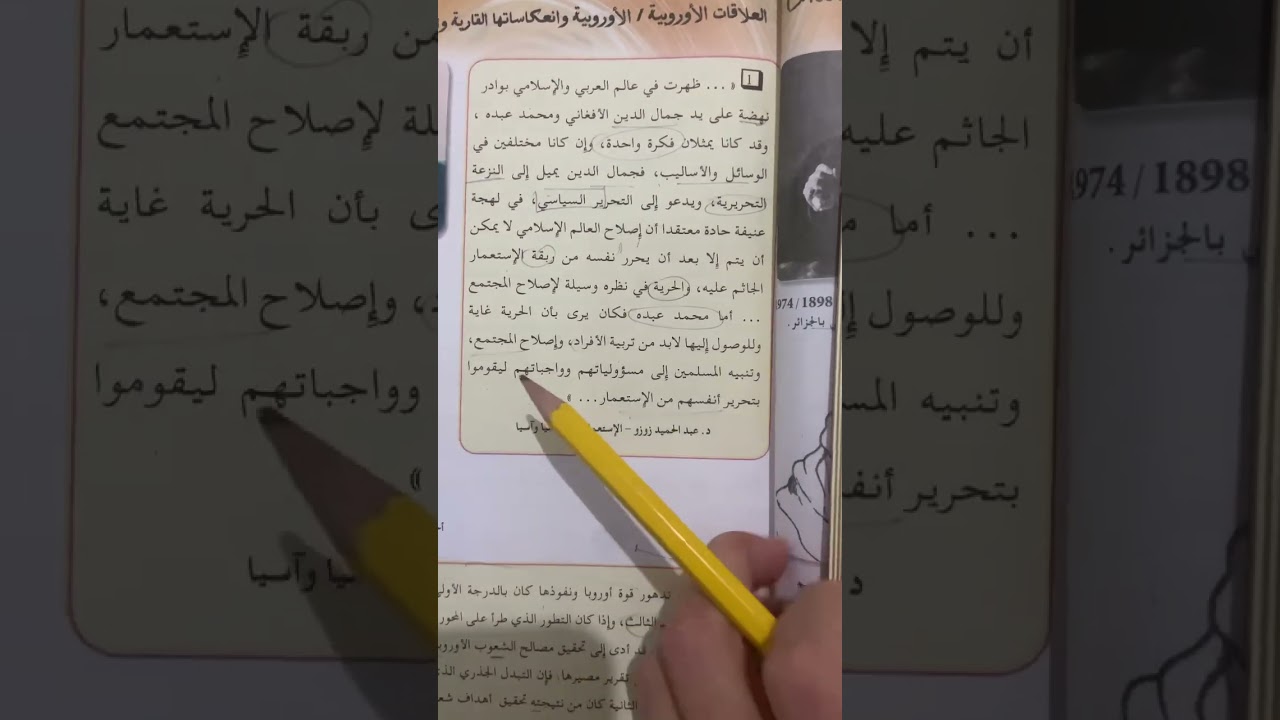 العلاقات الأوروبية / الأوروبية وانعكاساتها القارية
1 « ... ظهرت في عالم العربي والإسلامي بوادر
نهضة على يد جمال الدين الأفغاني ومحمد عبده ،
وقد كانا يمثلان فكرة واحدة، وإن كانا مختلفين في
الوسائل والأساليب، فجمال الدين يميل إلى النزعة
التحريرية، ويدعو إلى التحرير السياسي، في لهجة
عنيفة حادة معتقدا أن إصلاح العالم الإسلامي لا يمكن
أن يتم إلا بعد أن يحرر نفسه من ربقة الإستعمار
الجاثم عليه، والحرية في نظره وسيلة لإصلاح المجتمع
... أما محمد عبده فكان يرى بأن الحرية غاية
وللوصول إليها لابد من تربية الأفراد، وإصلاح المجتمع،
وتنبيه المسلمين إلى مسؤولياتهم وواجباتهم ليقوموا
بتحرير أنفسهم من الإستعمار ... »
د. عبد الحميد زوزو - وآسيا
1898 / 1974
بالجزائر.
تدهور قوة أوروبا ونفوذها كان بالدرجة الأولى
الثالث، وإذا كان التطور الذي طرأ على المحور
قد أدى إلى تحقيق مصالح الشعوب
تقرير مصيرها. فإن التبدل الجذري
الثانية كان من نتيجته تحقيق أهداف